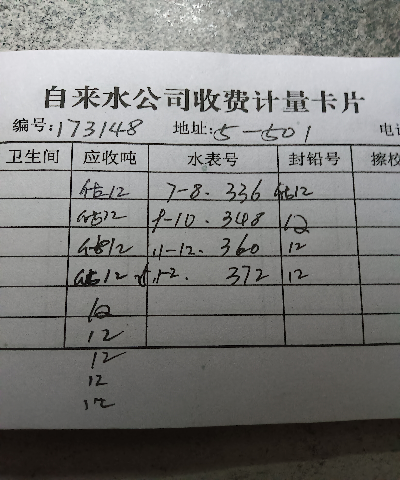 自来水公司收费计量卡片
编号:173148 地址:5-501 电
卫生间 应收吨 水表号 封铅号 擦校
12 7-8. 336 12
12 9-10. 348 12
12 11-12. 360 12
12 1-2. 372 12
12
12
12
12
12